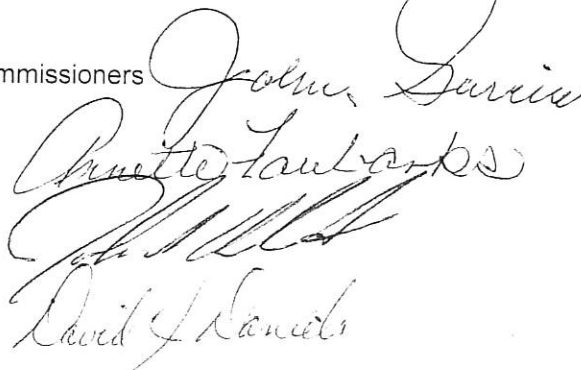 mmissioners John Garcia
Annette Fairbanks
John
David J Daniels